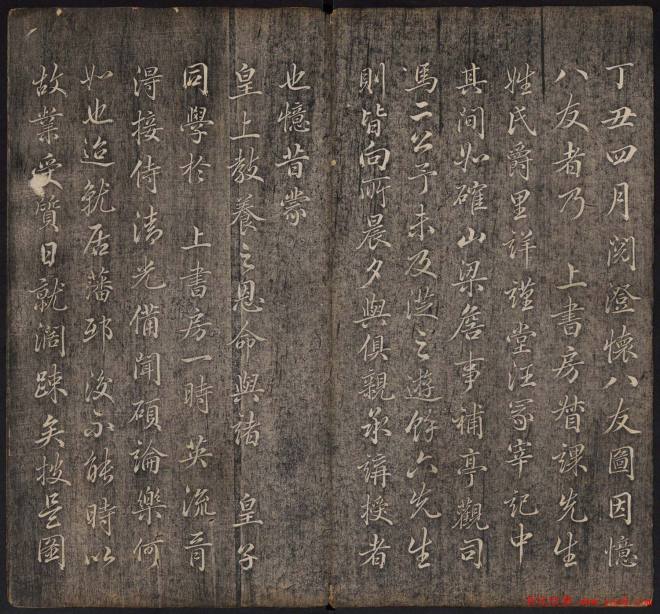 丁丑四月閱澄懷八友圖因憶
八友者乃　上書房督課先生
姓氏爵里詳謹堂汪冢宰記中
其间如確山梁詹事補亭觀司
馮二公予未及從之遊餘六先生
則皆向所晨夕與俱親承講授者
也憶昔蒙
皇上教養之恩命與諸　皇子
同學於　上書房一時英流肩
得接侍清光備聞碩論樂何
如也迨就居藩邸後不能時以
故業受質日就濶踈矣披是圖